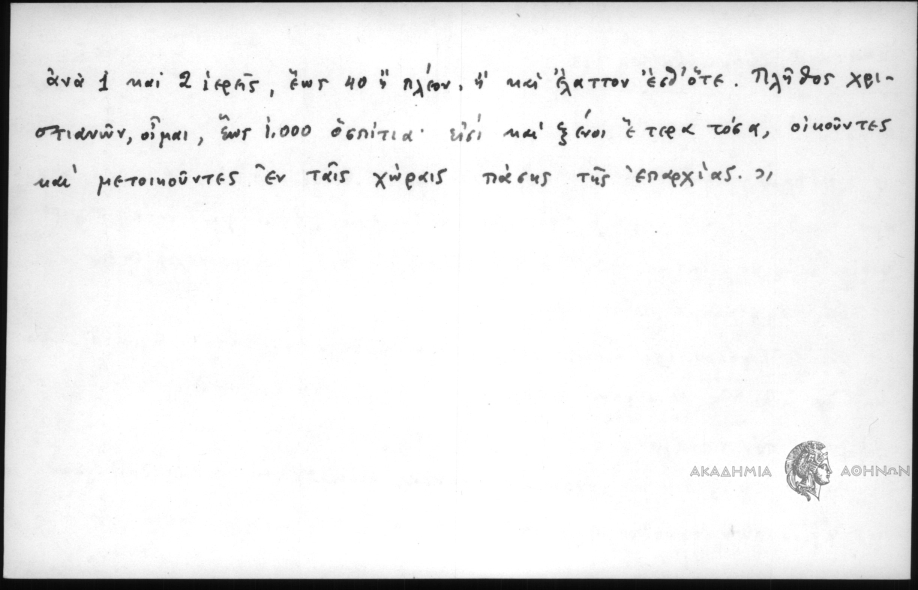 ἀνὰ 1 καὶ 2 ἱερῆς, ἕως 40 ἢ πλέον, ἢ καὶ ἔλαττον ἔσθ' ὅτε. Πλῆθος χρι-
στιανῶν, οἶμαι, ἕως 1.000 ὁσπίτια· εἰσί καὶ ξένοι ἕτερα τόσα, οἰκοῦντες
καὶ μετοικοῦντες ἐν ταῖς χώραις πάσης τῆς ἐπαρχίας.»
ΑΚΑΔΗΜΙΑ ΑΘΗΝΩΝ